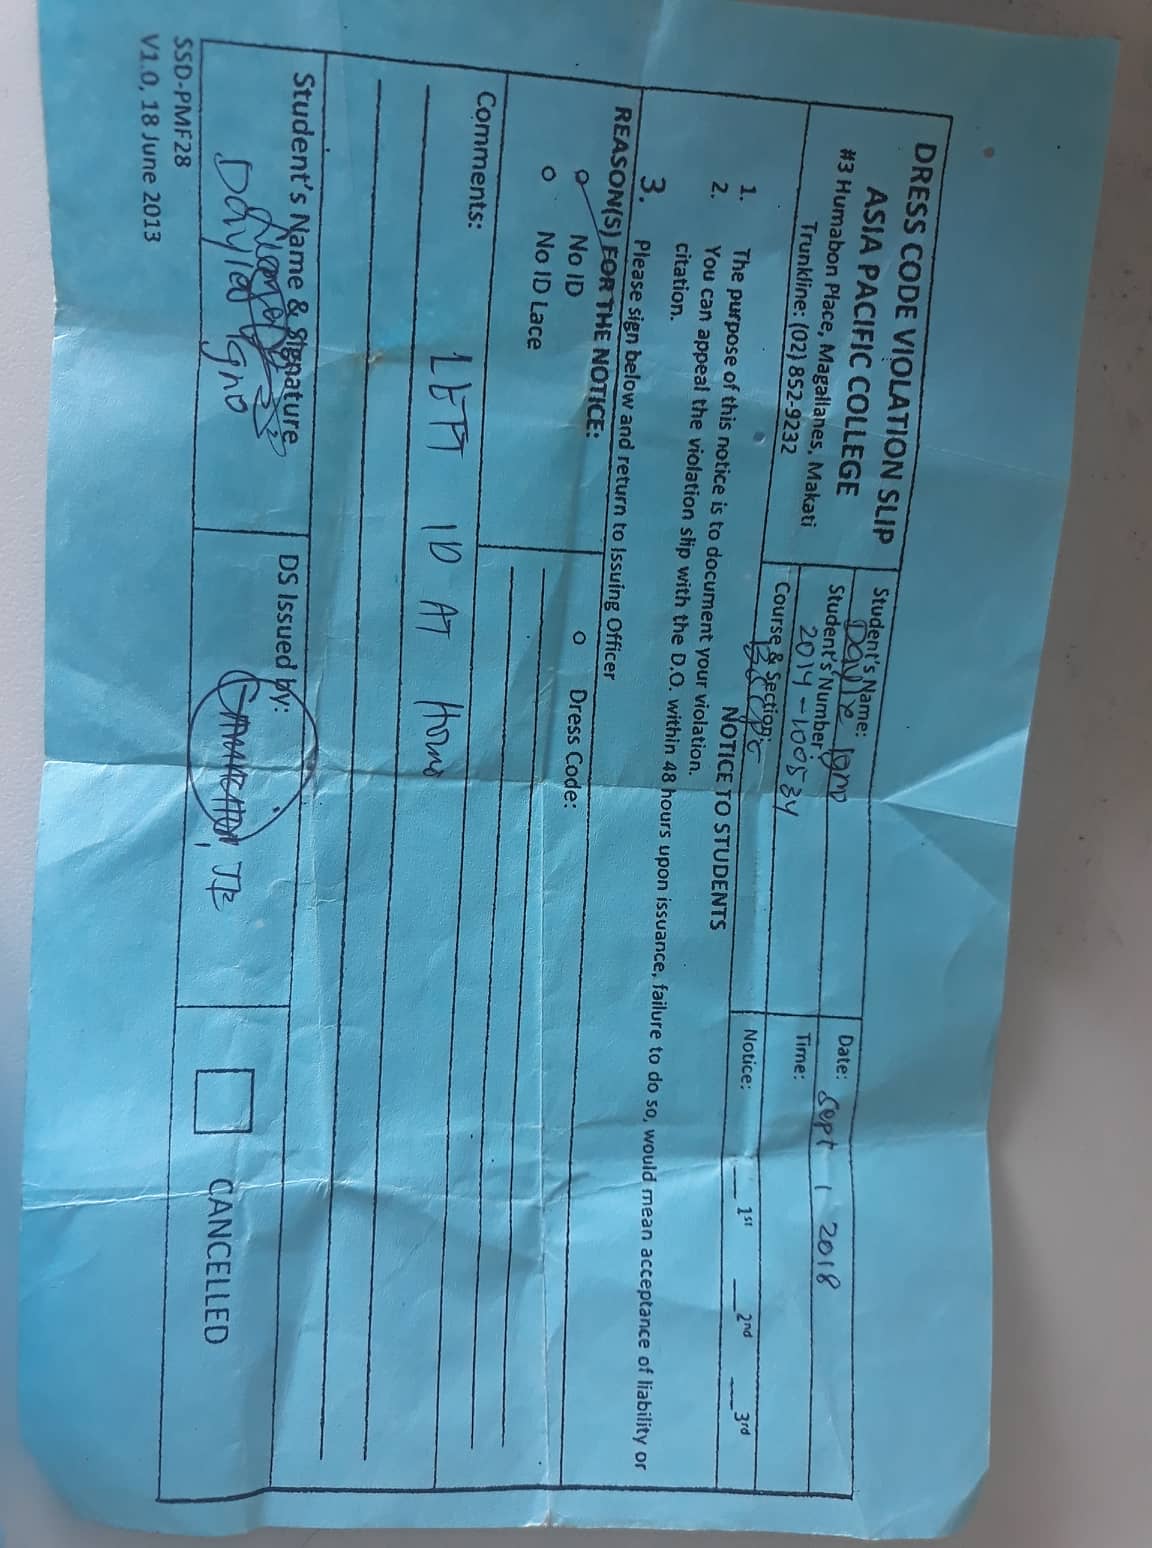 DRESS CODE VIOLATION SLIP
ASIA PACIFIC COLLEGE
#3 Humabon Place, Magallanes, Makati
Trunkline: (02) 852-9232
Student's Name:
Dayle Igno
Student's Number
2014-100534
Course & Section:
Date: Sept 1 2018
Time:
Notice: __ 1st __ 2nd __ 3rd
NOTICE TO STUDENTS
1. The purpose of this notice is to document your violation.
2. You can appeal the violation slip with the D.O. within 48 hours upon issuance, failure to do so, would mean acceptance of liability or
citation.
3. Please sign below and return to Issuing Officer
REASON(S) FOR THE NOTICE:
o No ID
o No ID Lace
o Dress Code:
Comments:
LEFT ID AT HOME
Student's Name & Signature
Dayle Igno
DS Issued by:
JR
CANCELLED
SSD-PMF28
V1.0, 18 June 2013